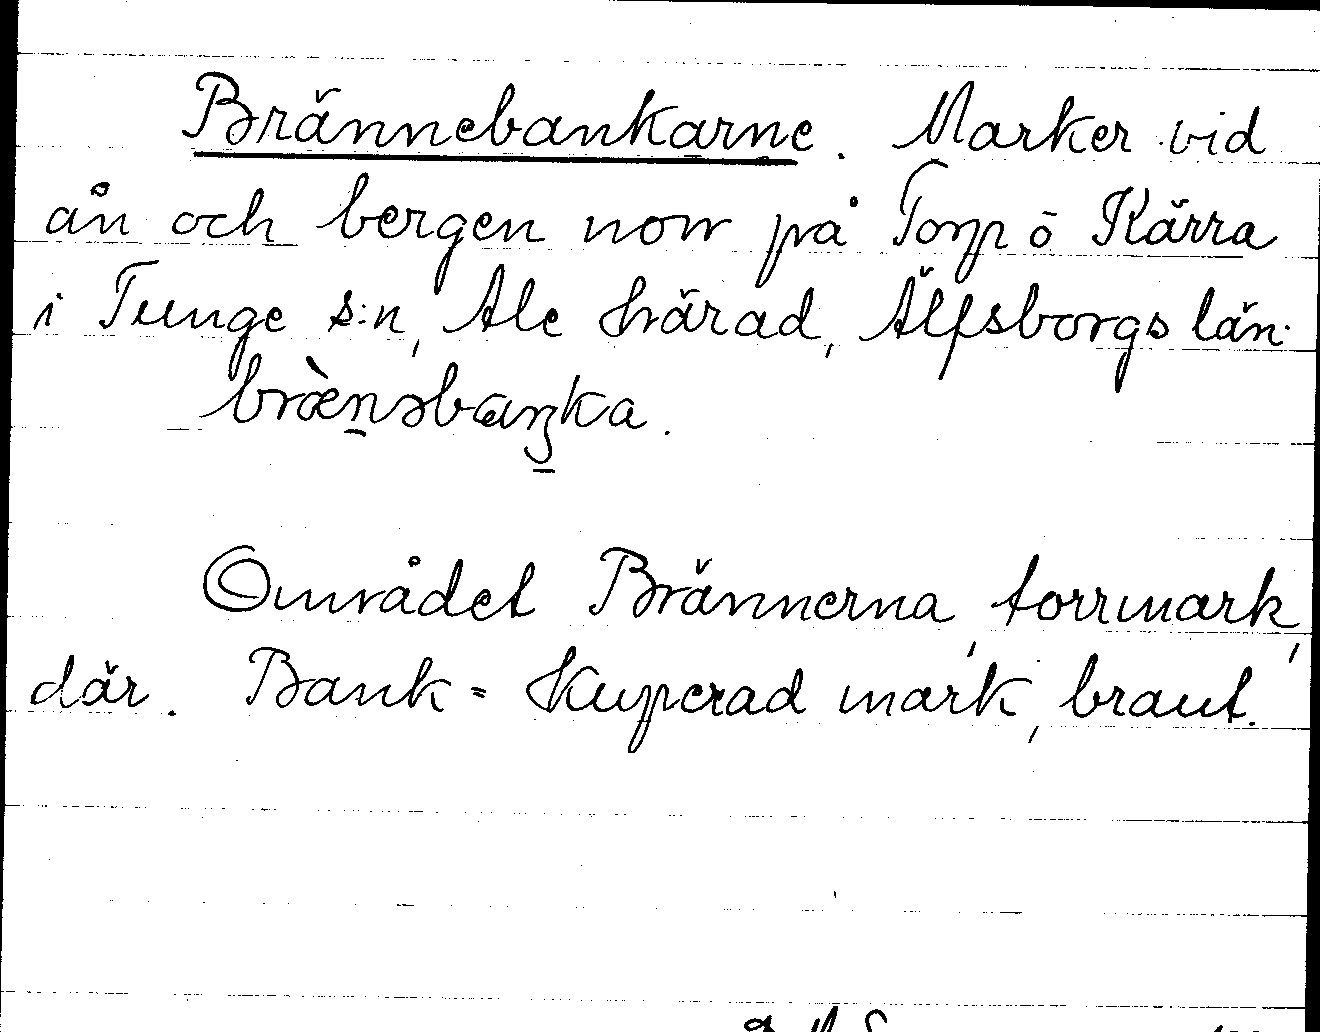 Brännebankarne. Marker vid
ån och bergen norr på Torp o Kärra
i Tunge s:n, Ale härad, Älfsborgs län.
bræ̀nəbaŋka.
Området Brännerna, torrmark,
där. Bank = Kuperad mark, brant.